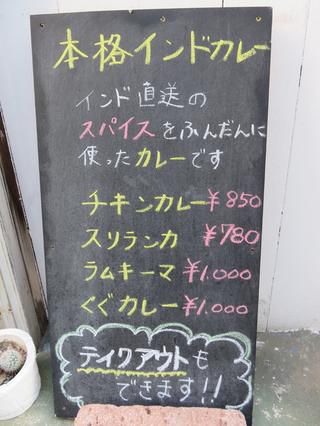 本格インドカレー
インド直送の
スパイスをふんだんに
使ったカレーです
チキンカレー¥850
スリランカ ¥780
ラムキーマ ¥1.000
くぐカレー¥1.000
テイクアウトも
できます!!